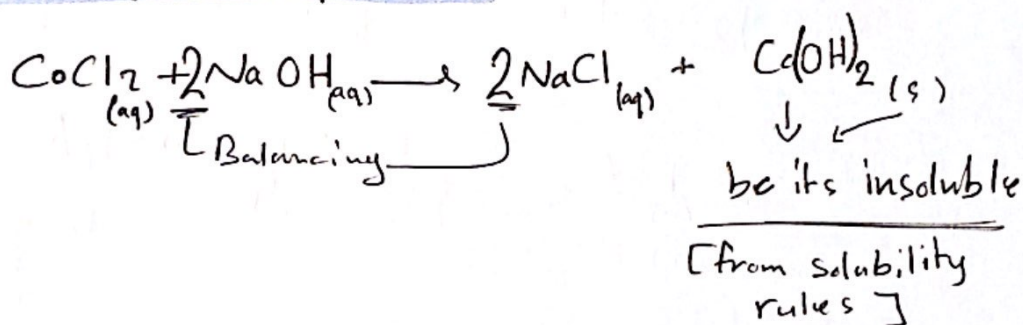 CoCl2 (aq) + 2NaOH (aq) → 2NaCl (aq) + Co(OH)2 (s)
Balancing
bc its insoluble
[from solubility
rules]